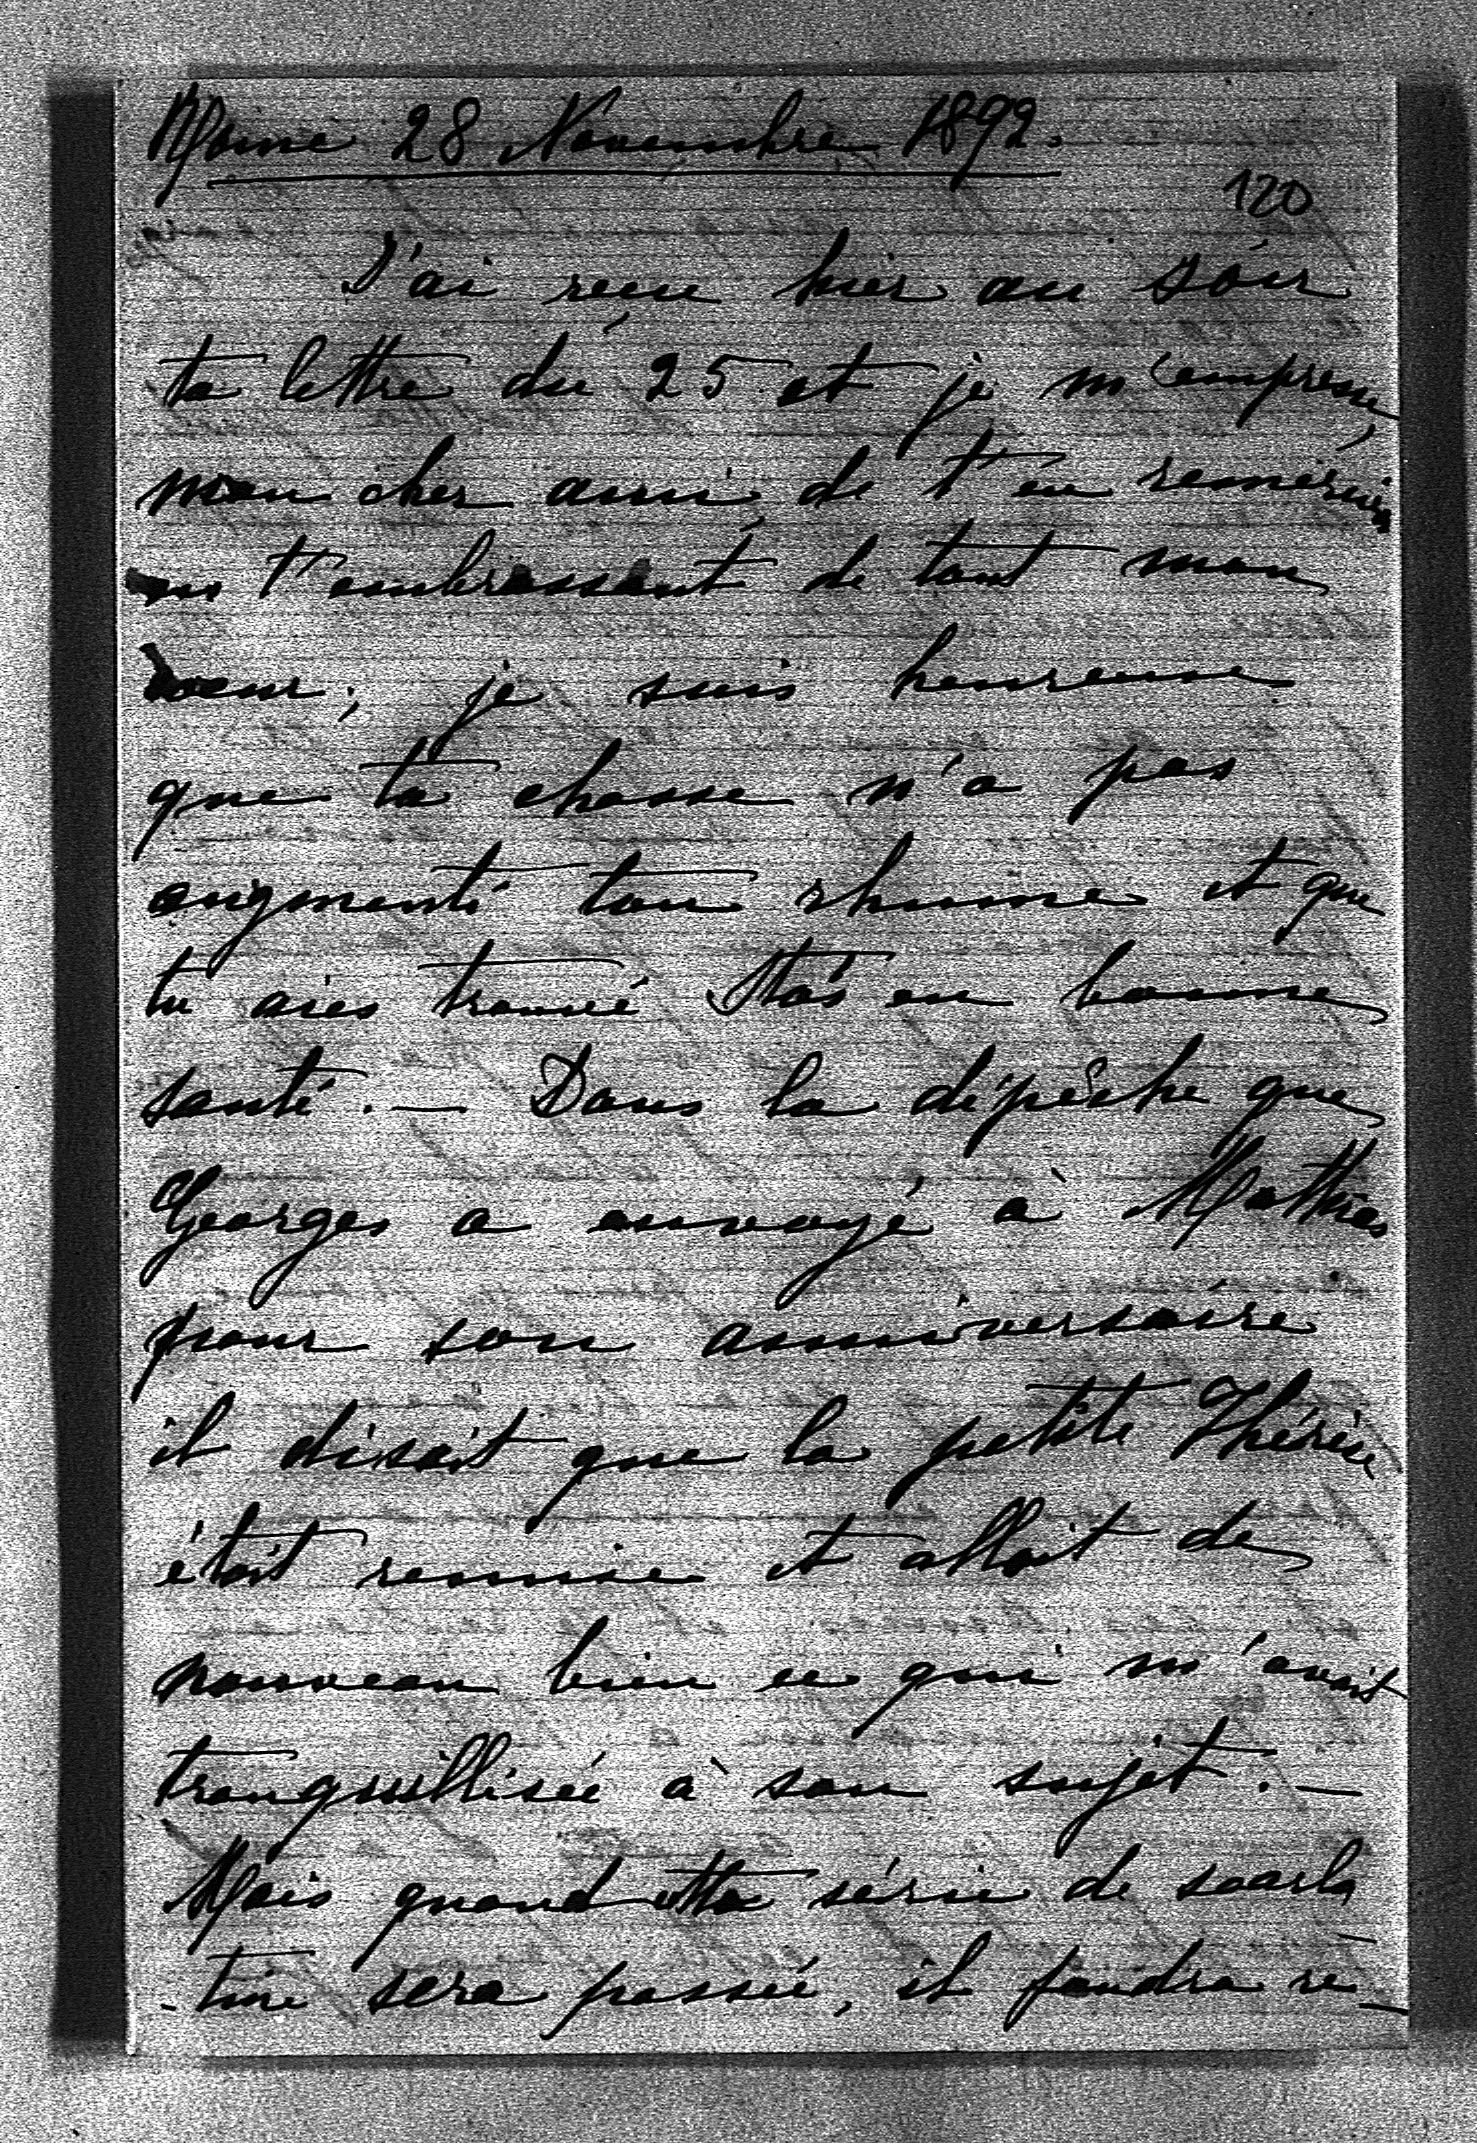 Rome 28 Novembre 1892.
120
J'ai reçu hier au soir
ta lettre du 25 et je m'empresse,
mon cher ami, de t'en remercier
en t'embrassant de tout mon
coeur; je suis heureuse
que ta chasse n'a pas
augmenté ton rhume et que
tu aies trouvé Stas en bonne
santé. — Dans la dépêche que
Georges a envoyé à Mathias
pour son anniversaire
il disait que la petite Thérèse
était remise et allait de
nouveau bien ce qui m'avait
tranquillisée à son sujet. —
Mais quand cette série de scarla
-tine sera passée, il faudra re-